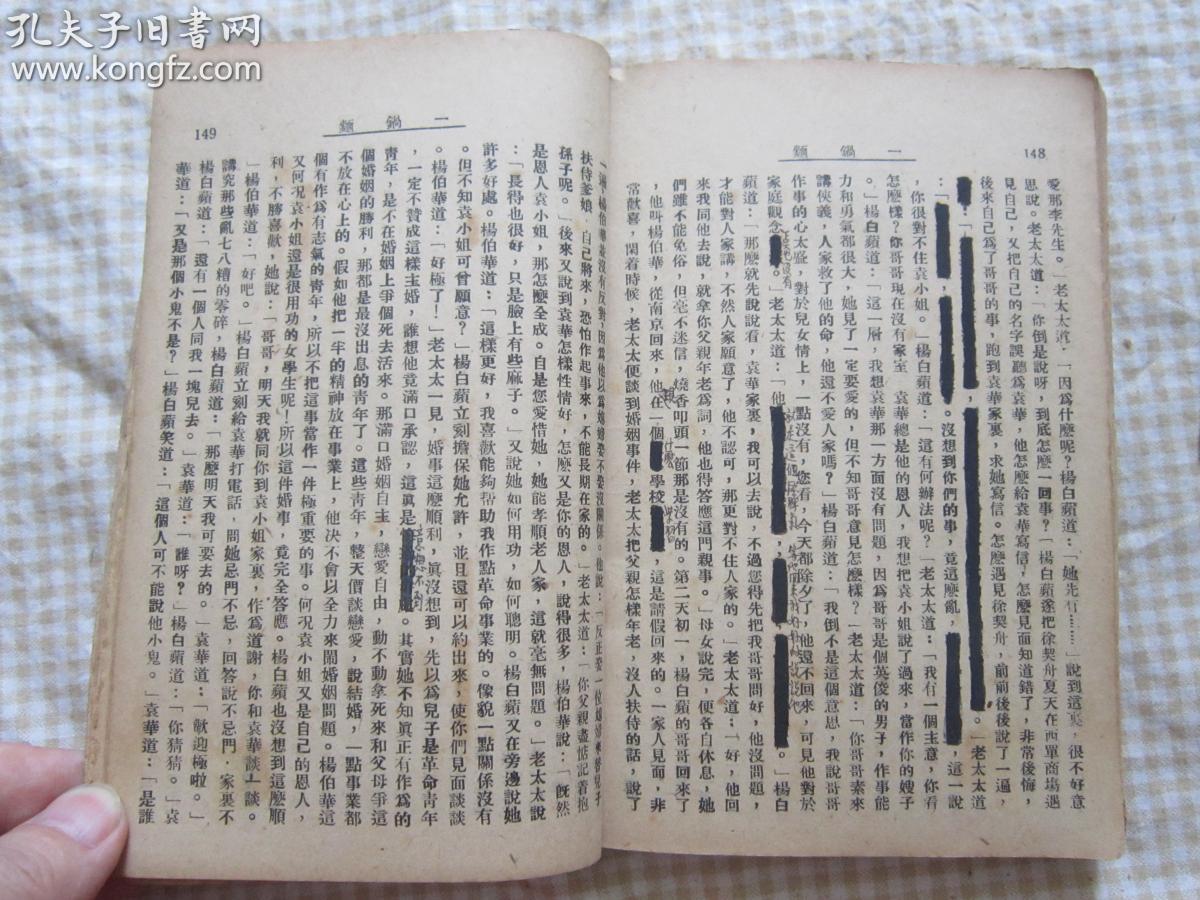 孔夫子旧書网
www.kongfz.com
148
麵 鍋 一
愛那李先生。」老太太道：「因爲什麼呢？楊白蘋道：「她先有……」說到這裏，很不好意
思說。老太太道：「你倒是說呀，到底怎麼一回事？」楊白蘋遂把徐契舟夏天在西單商場遇
見自己，又把自己的名字誤聽爲袁華，他怎麼給袁華寫信，怎麼見面知道錯了，非常後悔，
後來自己爲了哥哥的事，跑到袁華家裏，求她寫信。怎麼遇見徐契舟，前前後後說了一遍，
。」老太太道
：「 。沒想到你們的事，竟這麼亂， ，這一說
，你很對不住袁小姐。」楊白蘋道：「這有何辦法呢？」老太太道：「我有一個主意，你看
怎麼樣？你哥哥現在沒有家室，袁華總是他的恩人，我想把袁小姐說了過來，當作你的嫂子
。」楊白蘋道：「這一層，我想袁華那一方面沒有問題，因爲哥哥是個英俊的男子，作事能
力和勇氣都很大，她見了一定要愛的，但不知哥哥意見怎麼樣？」老太太道：「你哥哥素來
講俠義，人家救了他的命，他還不愛人家嗎？」楊白蘋道：「我倒不是這個意思，我說哥哥
作事的心太盛，對於兒女情上，一點沒有，您看，今天都除夕了，他還不回來，可見他對於
家庭觀念 。」老太太道：「他 。」楊白
蘋道：「那麼就先說說看，袁華家裏，我可以去說，不過您得先把我哥哥問好，他沒問題，
才能對人家講，不然人家願意了，他不認可，那更對不住人家的。」老太太道：「好，他回
來我同他去說，就拿你父親年老爲詞，他也得答應這門親事。」母女說完，便各自休息，她
們雖不能免俗，但亳不迷信，燒香叩頭一節那是沒有的。第二天初一，楊白蘋的哥哥回來了
，他叫楊伯華，從南京回來，他住一個 學校 ，這是請假回來的。一家人見面，非
常歡喜，閑着時候，老太太便談到婚姻事件，老太太把父親怎樣年老，沒人扶侍的話，說了
149
麵 鍋 一
扶侍爹娘，自己將來，恐怕作起事來，不能長期在家的。」老太太道：「你父親盡惦記着抱
孫子呢。」後來又說到袁華怎樣性情好，怎麼又是你的恩人，說得很多，楊伯華說：「旣然
是恩人袁小姐，那怎麼全成。自是您愛惜她，她能孝順老人家，這就亳無問題。」老太太說
：「長得也很好，只是臉上有些麻子。」又說她如何用功，如何聰明。楊白蘋又在旁邊說她
許多好處。楊伯華道：「這樣更好，我喜歡能夠帮助我作點革命事業的。像貌一點關係沒有
。但不知袁小姐可曾願意？」楊白蘋立刻擔保她允許，並且還可以約出來，使你們見面談談
。楊伯華道：「好極了！」老太太一見，婚事這麼順利，眞沒想到，先以爲兒子是革命靑年
，一定不贊成這樣主婚，誰想他竟滿口承認，這眞是 。其實她不知眞正有作爲的
靑年，是不在婚姻上爭個死去活來。那滿口婚姻自主，戀愛自由，動不動拿死來和父母爭這
個婚姻的勝利，那都是最沒出息的靑年了。這些靑年，整天價談戀愛，說結婚，一點事業都
不放在心上的。假如他把一半的精神放在事業上，他決不會以全力來鬧婚姻問題。楊伯華這
個有作爲有志氣的靑年，所以不把這事當作一件極重要的事。何況袁小姐又是自己的恩人，
又何況袁小姐還是很用功的女學生呢！所以這件婚事，竟完全答應。楊白蘋也沒想到這麼順
利，不勝喜歡，她說：「哥哥，明天我就同你到袁小姐家裏，作爲道謝，你和袁華談一談。
」楊伯華道：「好吧。」楊白蘋立刻給袁華打電話，問她忌門不忌，回答說不忌門，家裏不
講究那些亂七八糟的零碎，楊白蘋道：「那麼明天我可要去的。」袁華道：「歡迎極啦。」
楊白蘋道：「還有一個人同我一塊兒去。」袁華道：「誰呀？」楊白蘋道：「你猜猜。」袁
華道：「又是那個小鬼不是？」楊白蘋笑道：「這個人可不能說他小鬼。」袁華道：「是誰